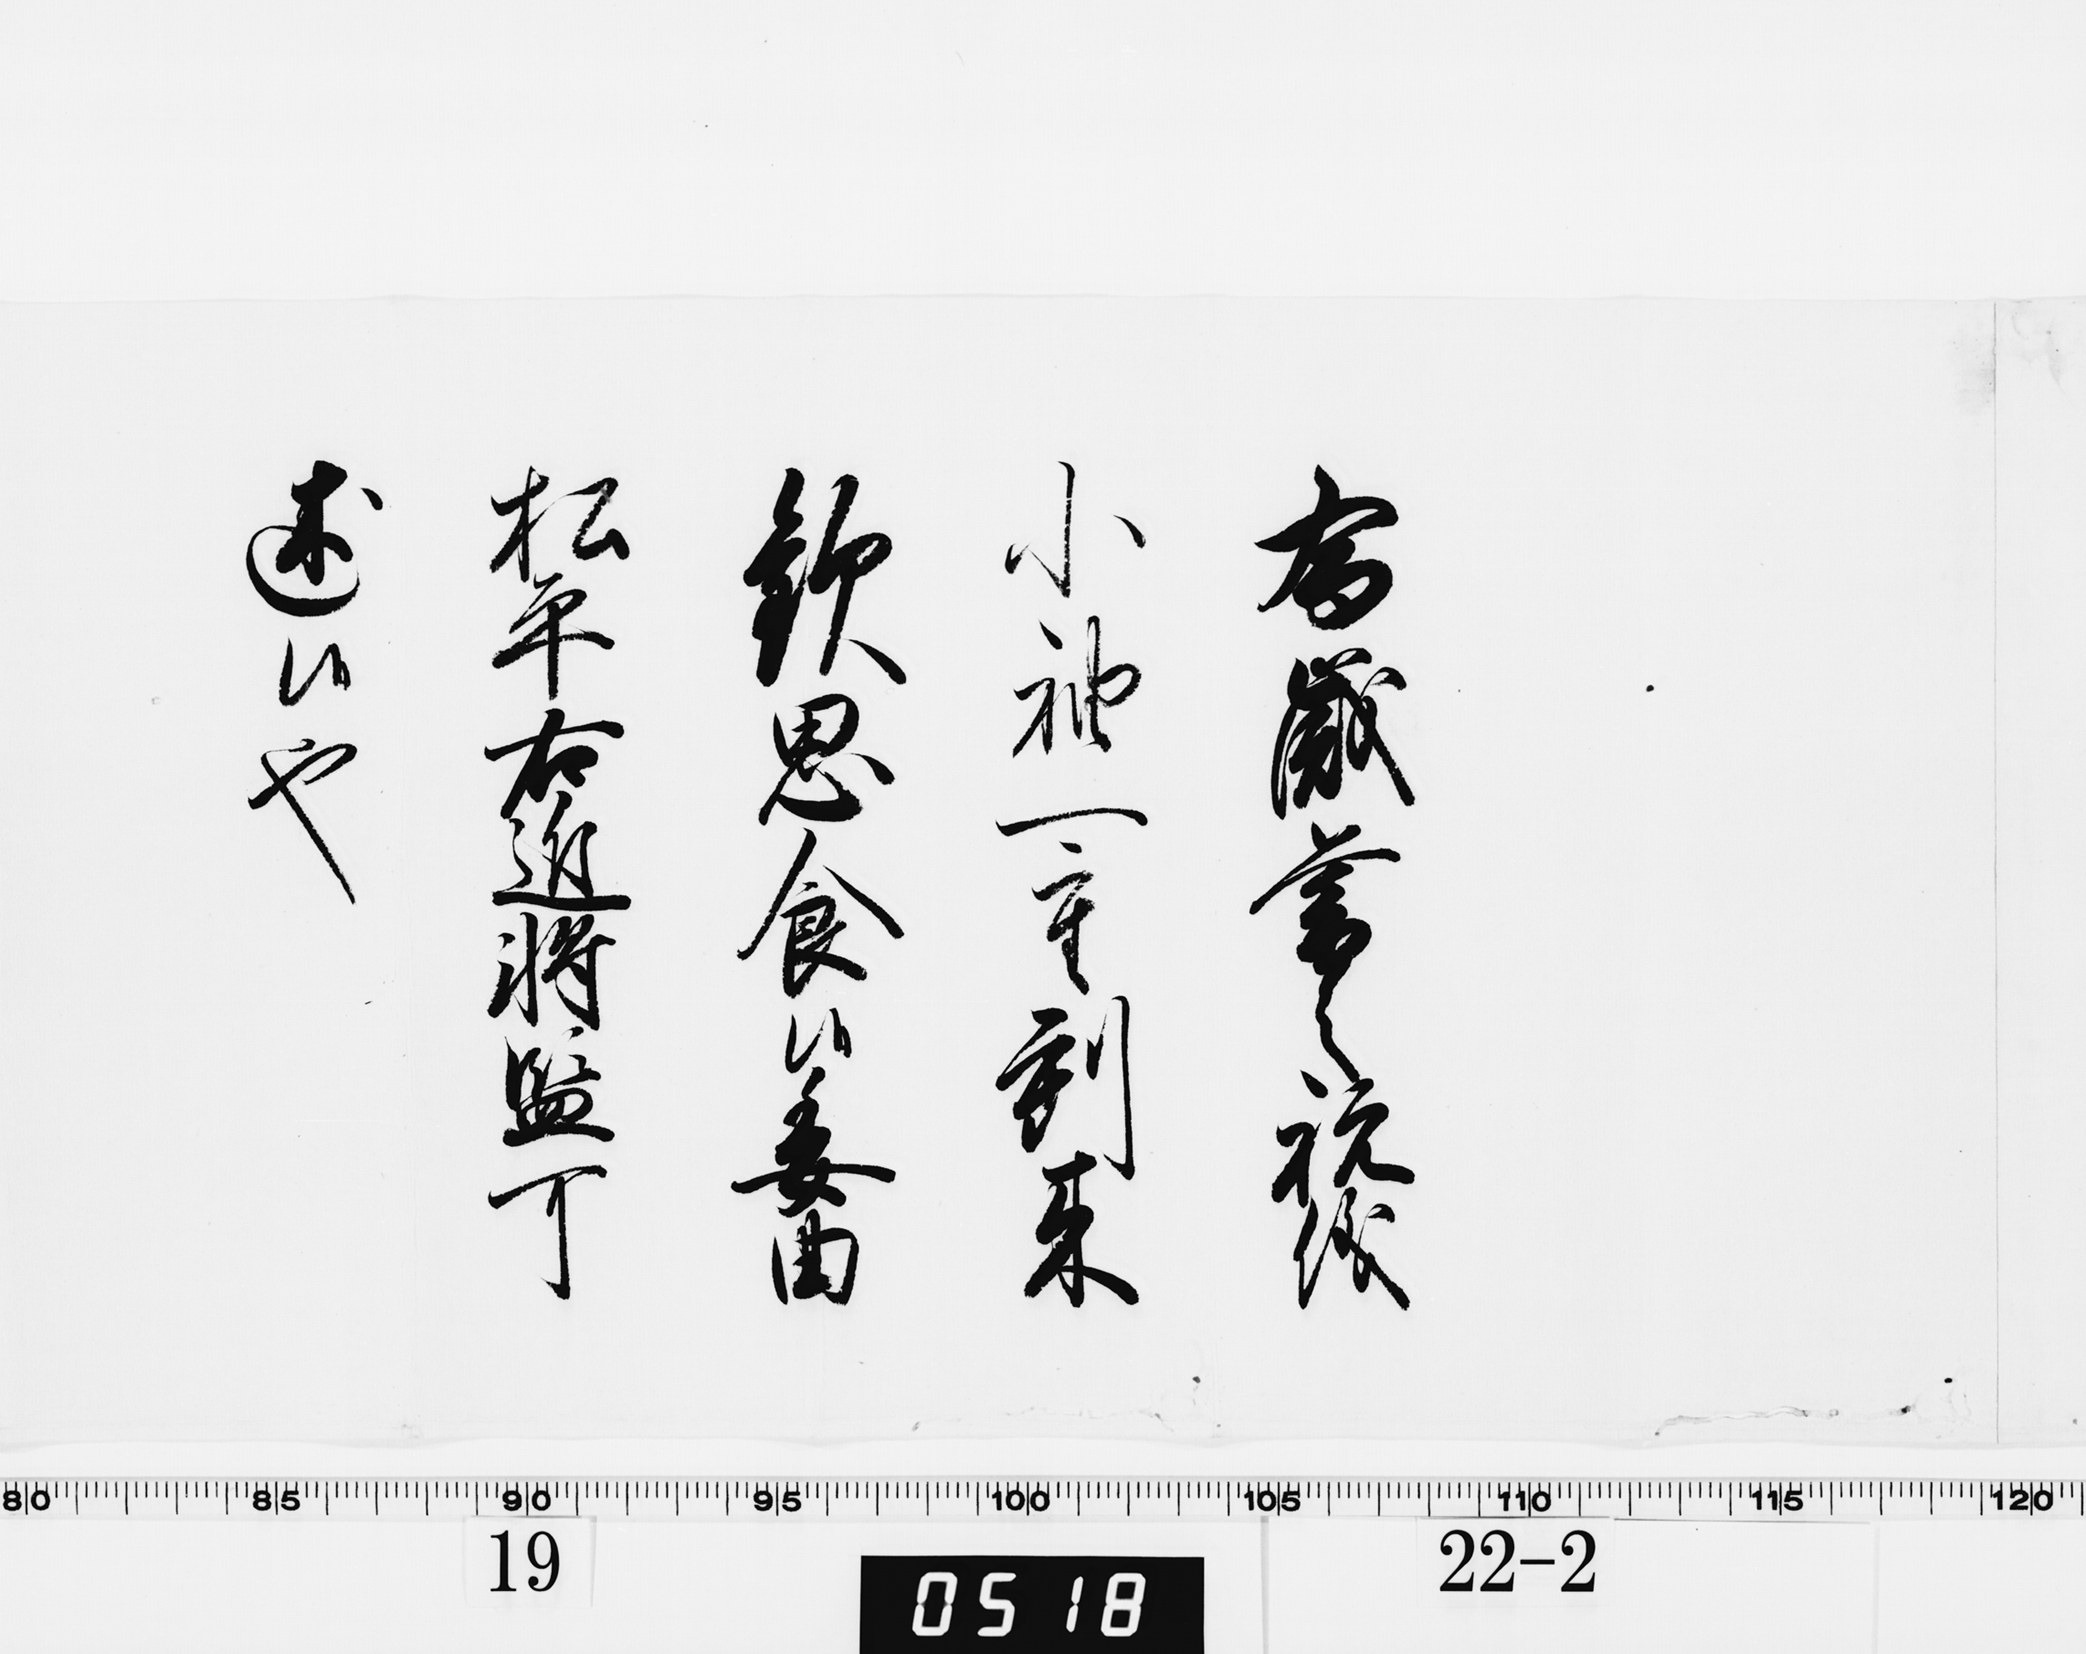 為歳暮之祝儀
小袖一重到来
歓思食候委曲
松平右近将監可
述候也
80 85 90 95 100 105 110 115 120
19
0518
22-2